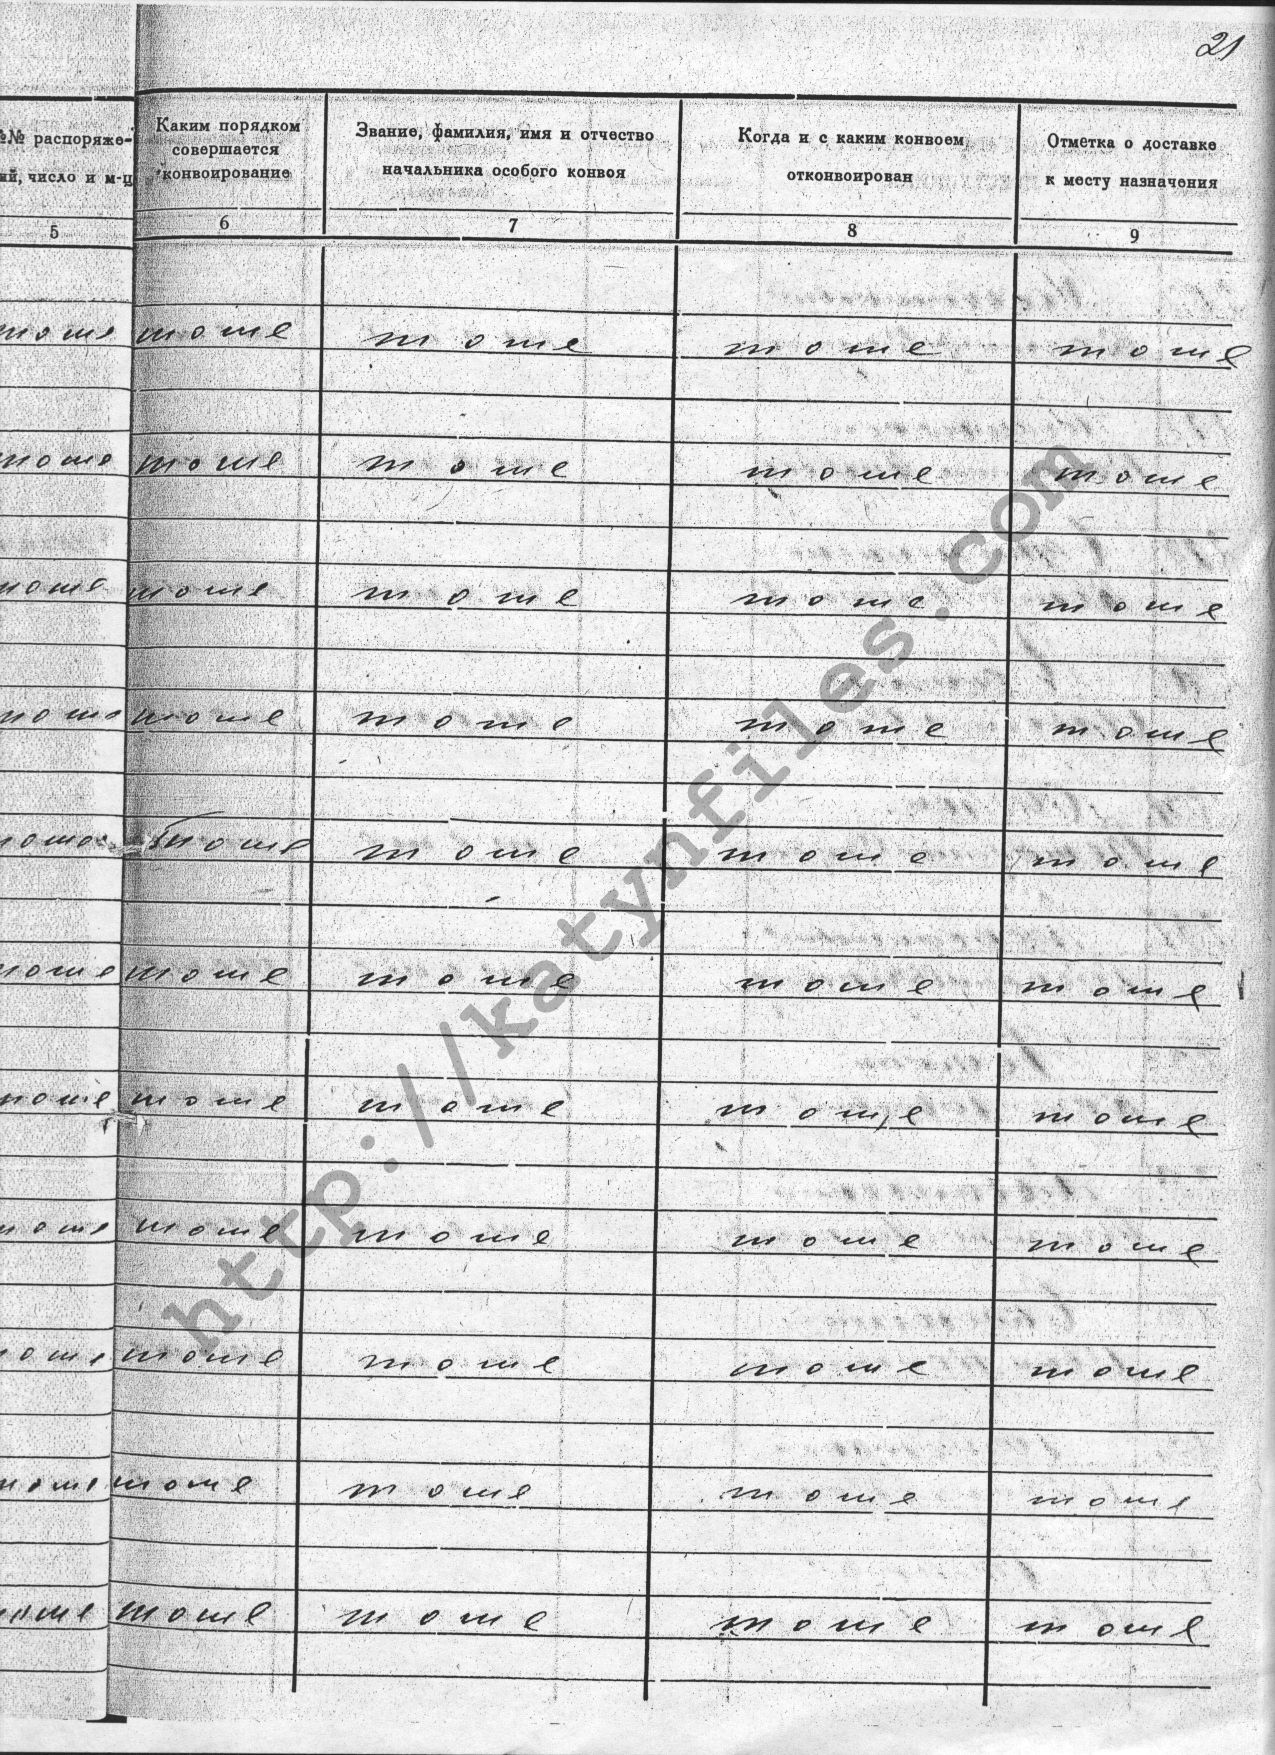 21
№№ распоряже-
ний, число и м-ц
Каким порядком
совершается
конвоирование
Звание, фамилия, имя и отчество
начальника особого конвоя
Когда и с каким конвоем
отконвоирован
Отметка о доставке
к месту назначения
5 6 7 8 9
тоже тоже тоже тоже тоже
тоже тоже тоже тоже тоже
тоже тоже тоже тоже тоже
тоже тоже тоже тоже тоже
тоже тоже тоже тоже тоже
тоже тоже тоже тоже тоже
тоже тоже тоже тоже тоже
тоже тоже тоже тоже тоже
тоже тоже тоже тоже тоже
тоже тоже тоже тоже тоже
тоже тоже тоже тоже тоже
http://katynfiles.com